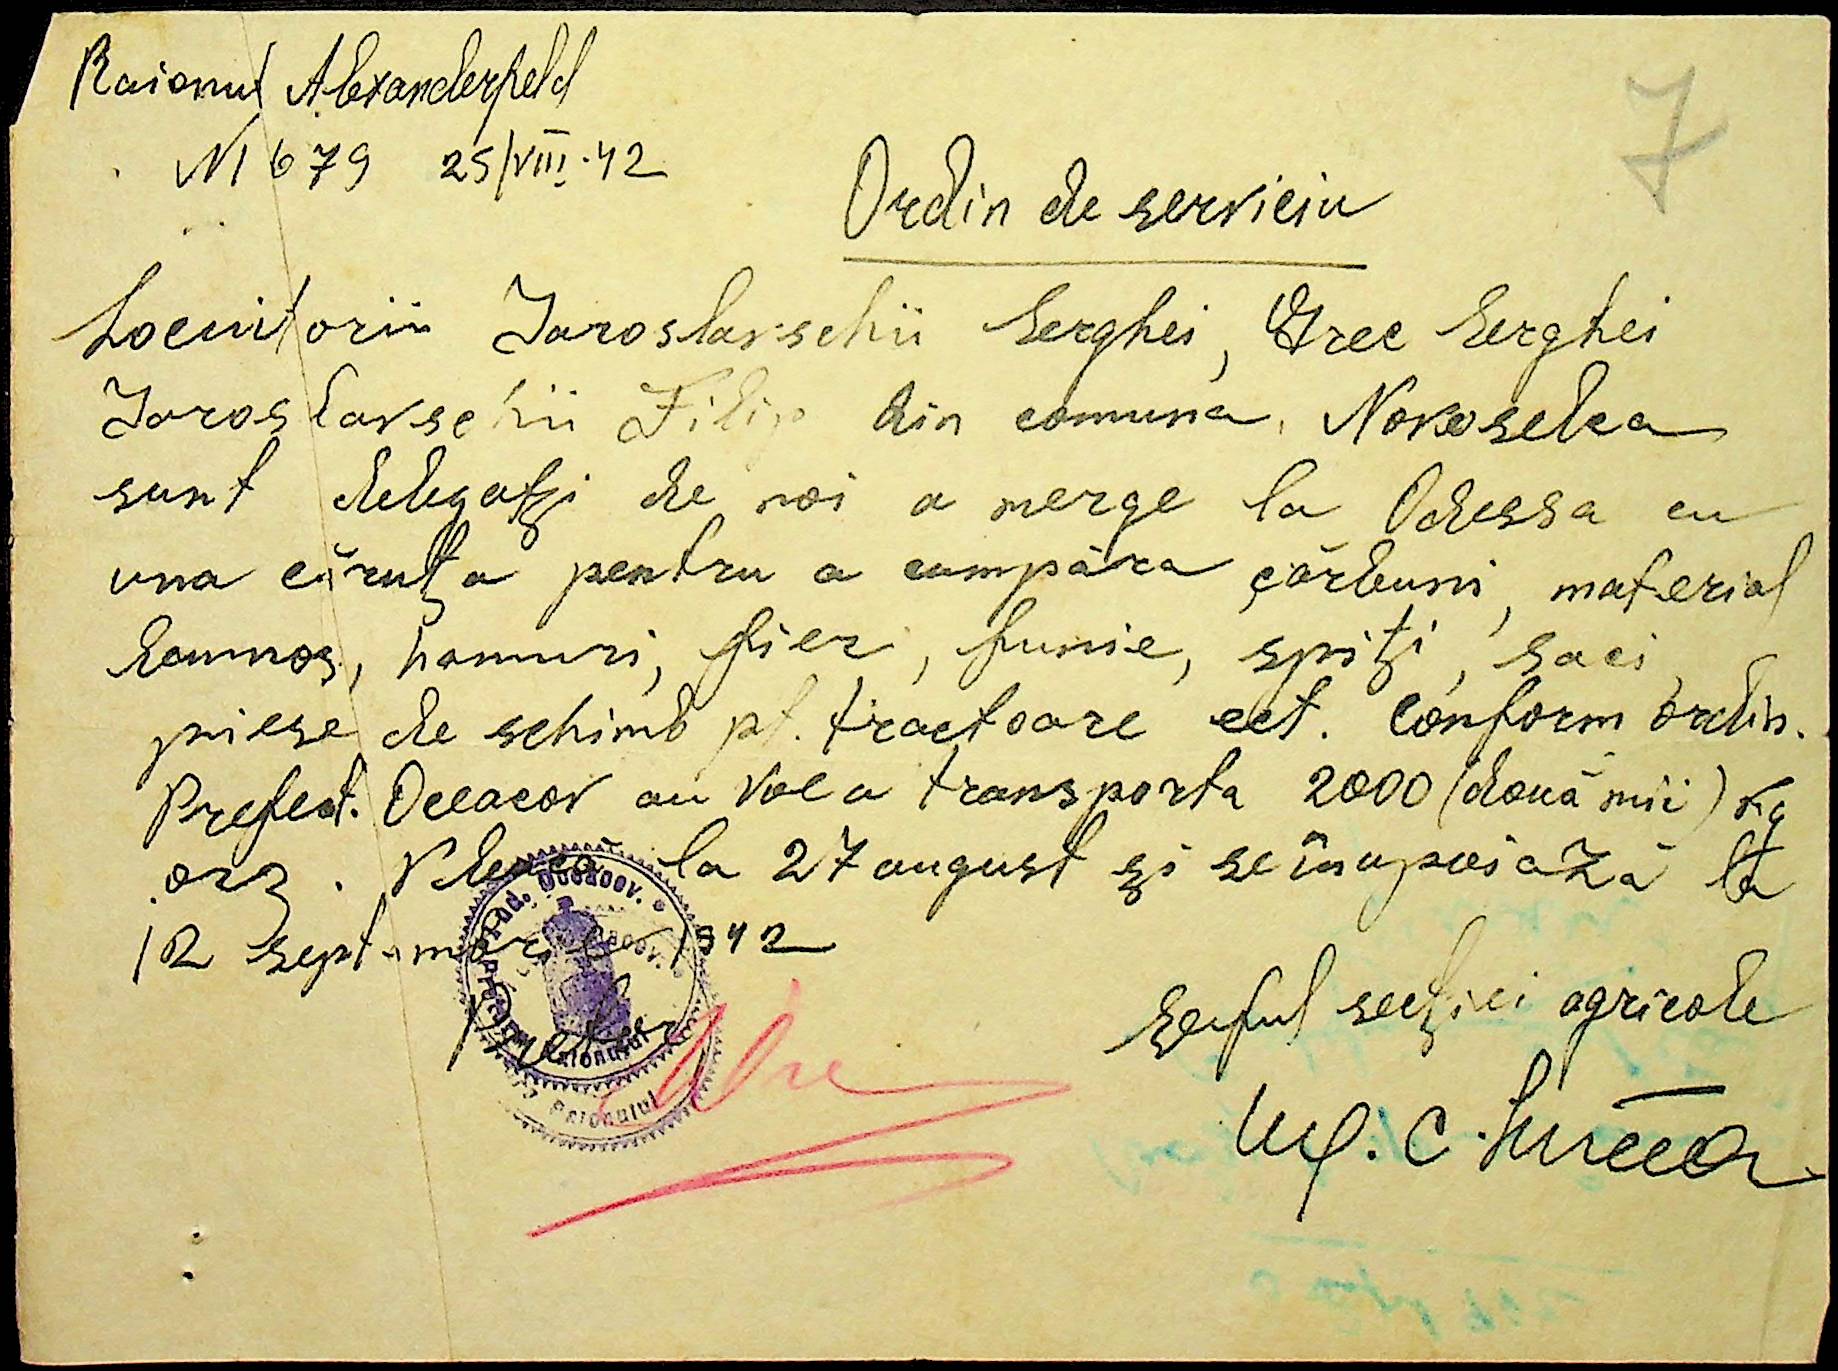 Raionul Alexanderfeld
N 679 25/VIII.42
7
Ordin de serviciu
Locuitorii Iaroslavschii Serghei, Grec Serghei
Iaroslavschii Filip din comuna Novoselca
sunt delegatzi de noi a merge la Odessa cu
una cărutza pentru a cumpăra cărbuni, material
lemnos, hamuri, fier, funie, spitzi, saci,
piese de schimb pt. tractoare ect. Conform ordin.
Prefect. Oceacov au voe a transporta 2000 (două mii) kg
orz. Pleacă la 27 august și se înapoiază la
12 septembrie 1942
Pretor
Șeful secției agricole